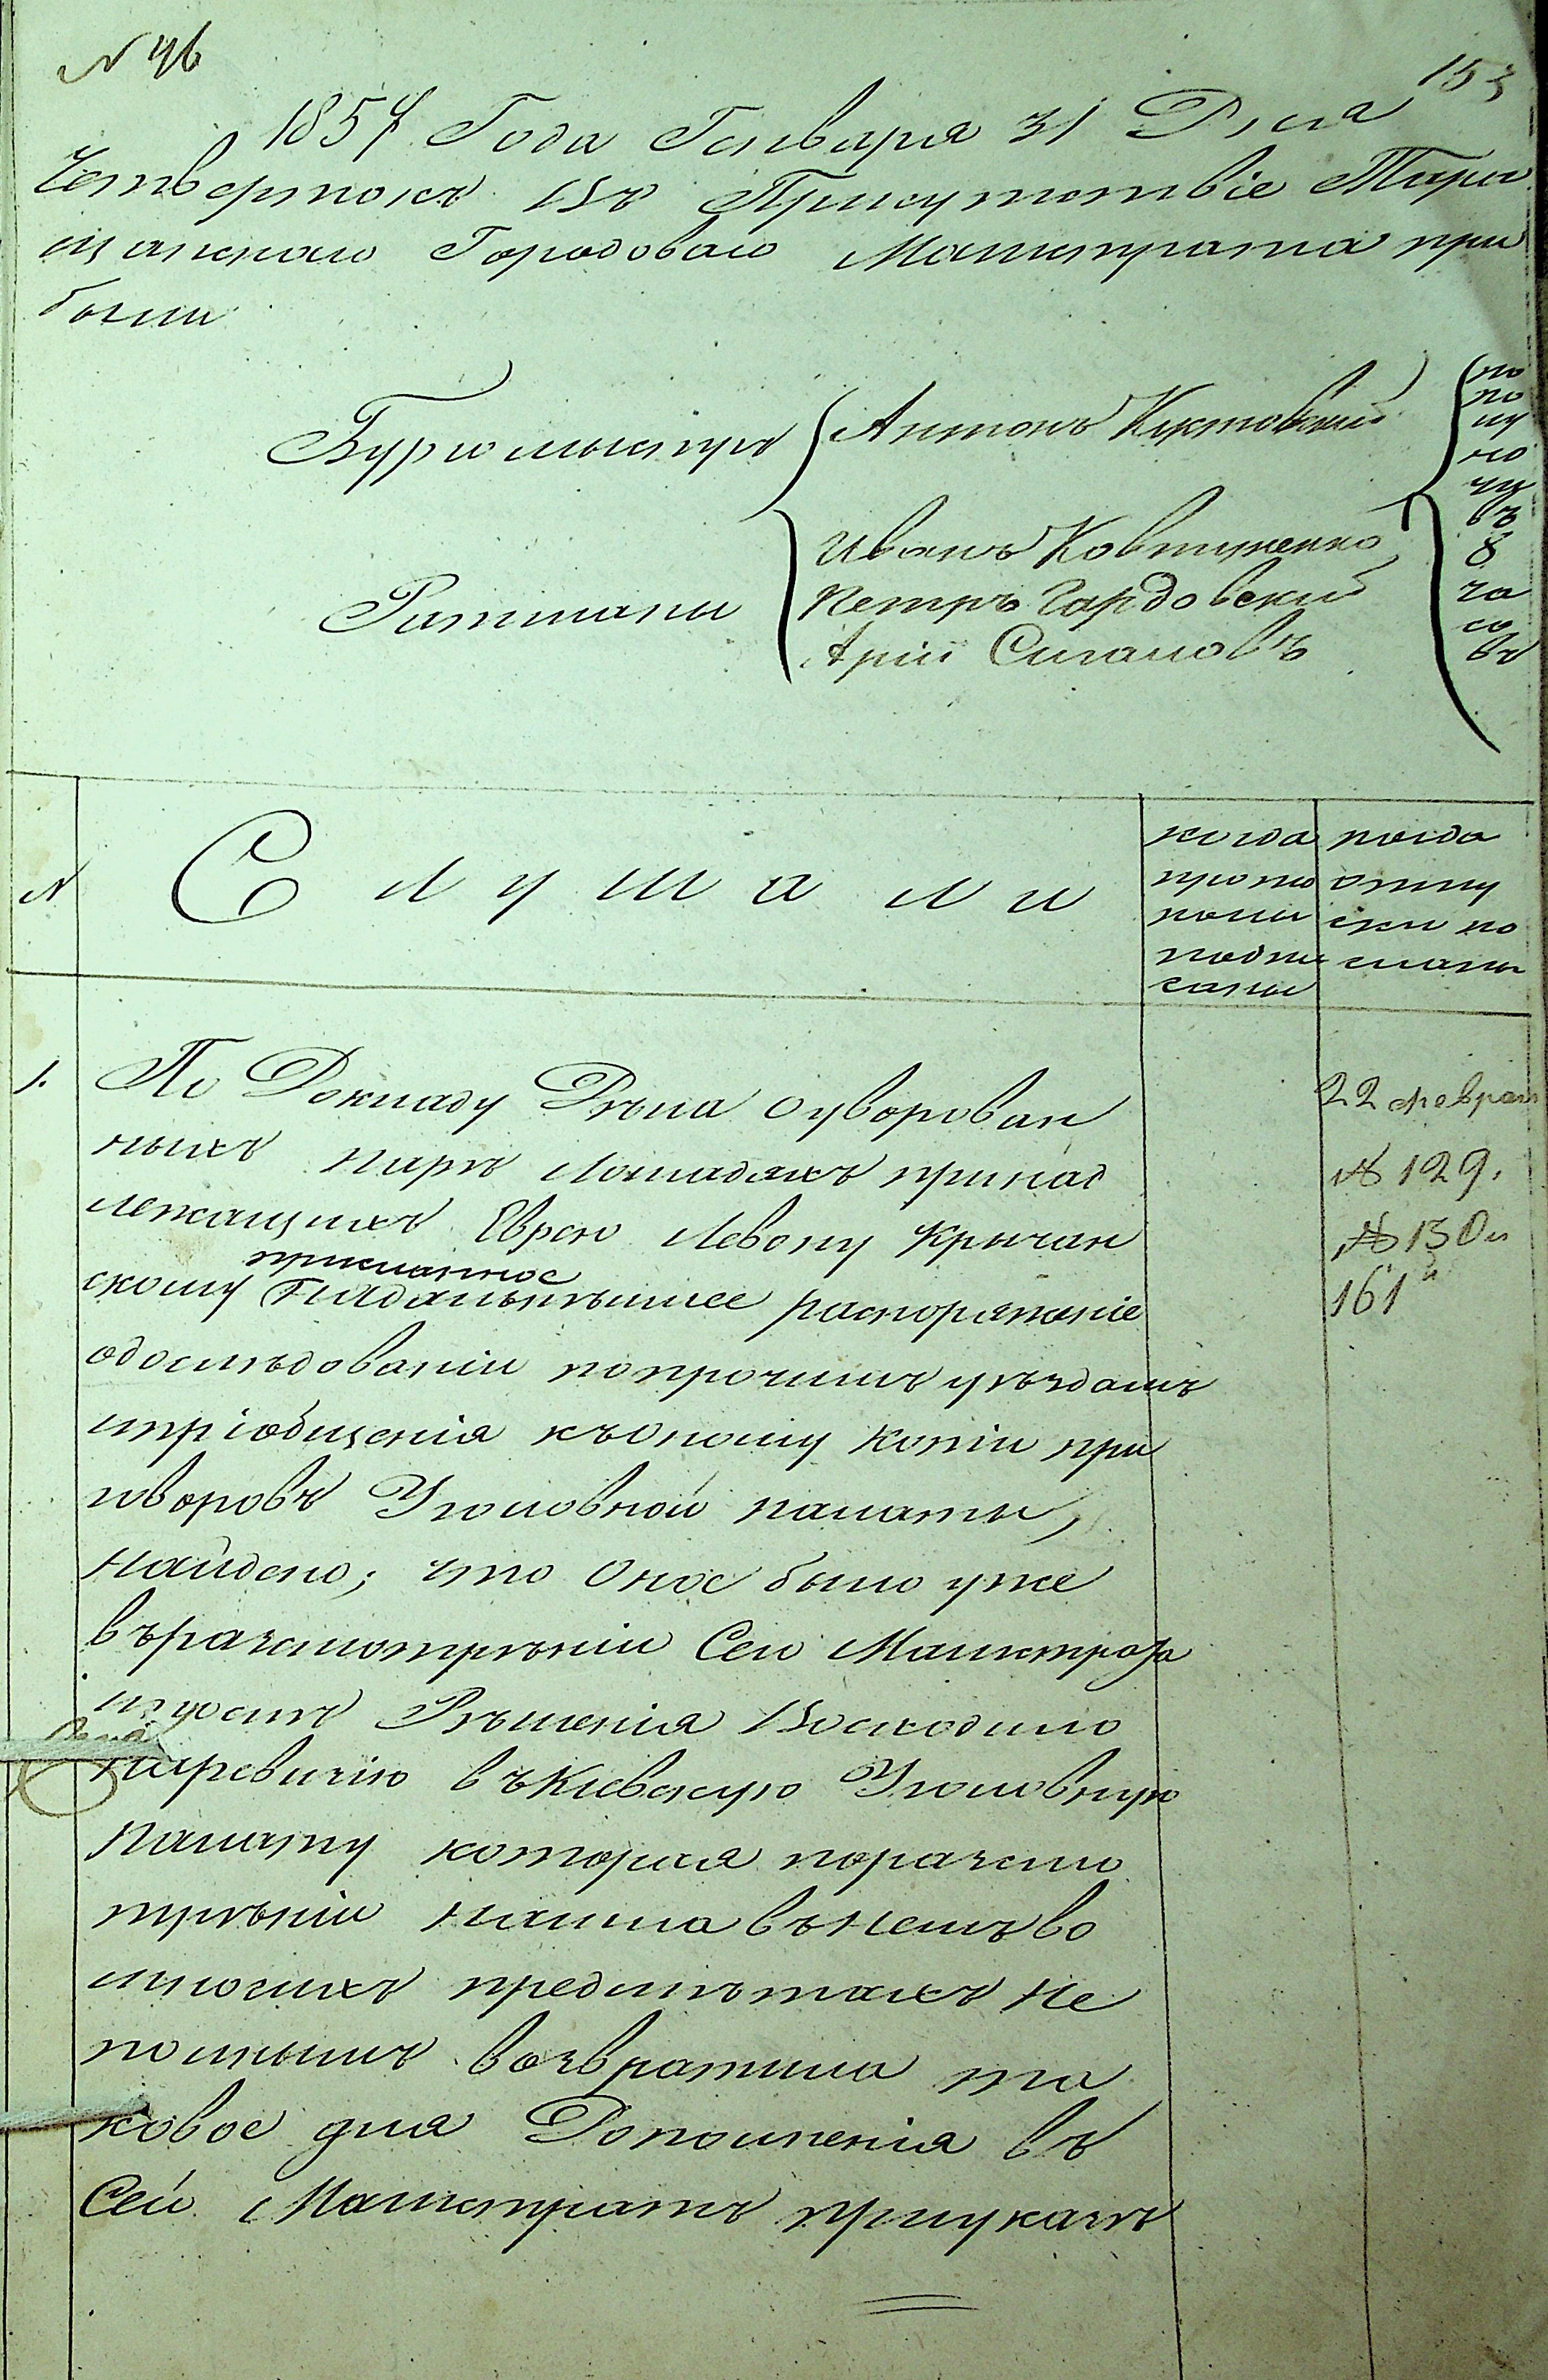 N 46
153
1857 Года Генваря 31 Дня
Четвертокъ Въ Присутствіе Тара
щанскаго Городоваго Магистрата при
были
Бургомыстръ
Антонъ
Ратманы
Иванъ Ковтуненко
Петръ Гардовский
Арій Сигаловъ
по
по
лу
но
чи
въ
8
ча
со
въ
N
Слушали
когда
прото
колы
подпи
саны
когда
отпу
ски по
сланы
1.
По Докладу Дѣла о уворован
ныхъ парѣ лошадяхъ принад
лежащихъ Еврею Левому Крычан
присланное
скому надальнѣйшее распоряженіе
одослѣдованіи попрочимъ уѣздамъ
ипріобщенія къоному копіи при
говоровъ Уголовной палаты,
найдено; что Оное было уже
въразсмотрѣніи Сего Магистрата
Рѣшенія Восходило
наревизію въКіевскую Уголовную
палату которая поразсмо
трѣніи нашла въНемъ во
многихъ предмѣтахъ не
полнымъ возвратила та
ковое для Дополненія въ
Сей Магистратъ приуказѣ
22 феврал
№ 129.
№ 130 и
161